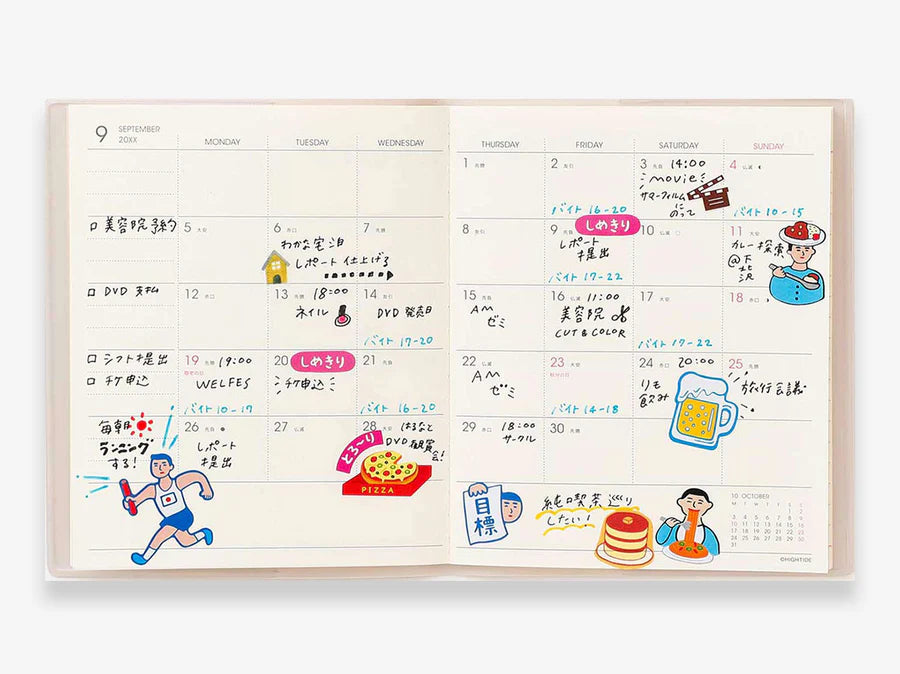 9 SEPTEMBER
20XX
MONDAY TUESDAY WEDNESDAY THURSDAY FRIDAY SATURDAY SUNDAY
1 先勝
2 友引
バイト 16-20
3 先負 14:00
movie
サマーフィルム
に
のって
4 仏滅
バイト 10-15
□ 美容院予約
5 大安
6 赤口
わかな宅泊
レポート 仕上げる
7 先勝
8 友引
9 先負 しめきり
レポート
提出
バイト 17-22
10 仏滅
11 大安
カレー探索
@下
北
沢
□ DVD 支払
12 赤口
13 先勝 18:00
ネイル
14 友引
DVD 発売日
バイト 17-20
15 先負
AM
ゼミ
16 仏滅 11:00
美容院
CUT & COLOR
17 大安
バイト 17-22
18 赤口
□ シフト提出
□ チケ申込
19 先勝 19:00
敬老の日
WELFES
バイト 10-17
20 友引 しめきり
チケ申込
21 先負
バイト 16-20
22 仏滅
AM
ゼミ
23 大安
秋分の日
バイト 14-18
24 赤口 20:00
りも
飲み
25 先勝
旅行会議
毎朝
ランニング
する!
26 先負
レポート
提出
27 仏滅
28 大安
はるなと
DVD観賞
会!
とろ〜り
PIZZA
29 赤口 18:00
サークル
30 先勝
目標
純喫茶巡り
したい!
10 OCTOBER
M T W T F S S
1 2
3 4 5 6 7 8 9
10 11 12 13 14 15 16
17 18 19 20 21 22 23
24 25 26 27 28 29 30
31
©HIGHTIDE